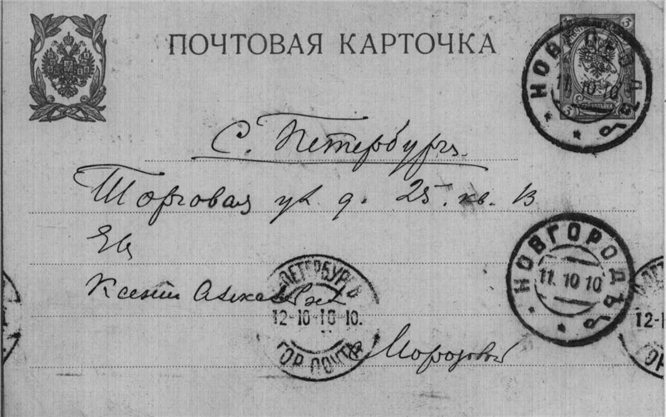 ПОЧТОВАЯ КАРТОЧКА
3
НОВГОРОДЪ
11.10.10
С. Петербургъ
Торговая ул. д. 25. кв. В
Ев
НОВГОРОДЪ
11.10.10
ПЕТЕРБУРГЪ
Ксении
12-10-10-10.
12-1
ГОР. ПОЧТА
Морозовой